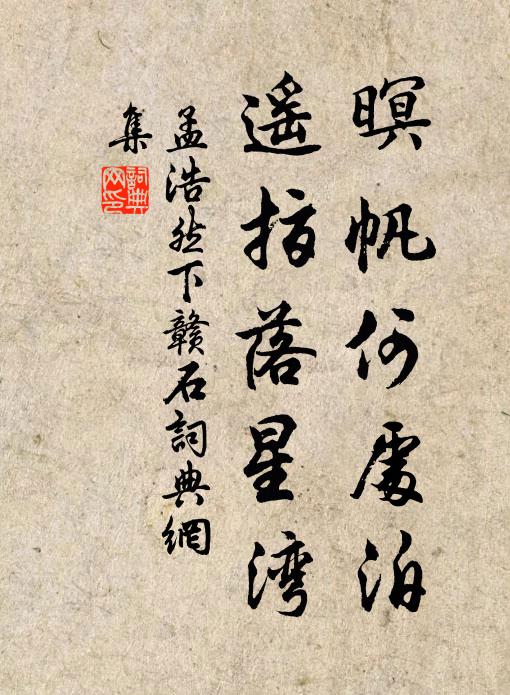 暝帆何處泊
遥指落星湾
孟浩然下赣石詞典網
集
詞典網印